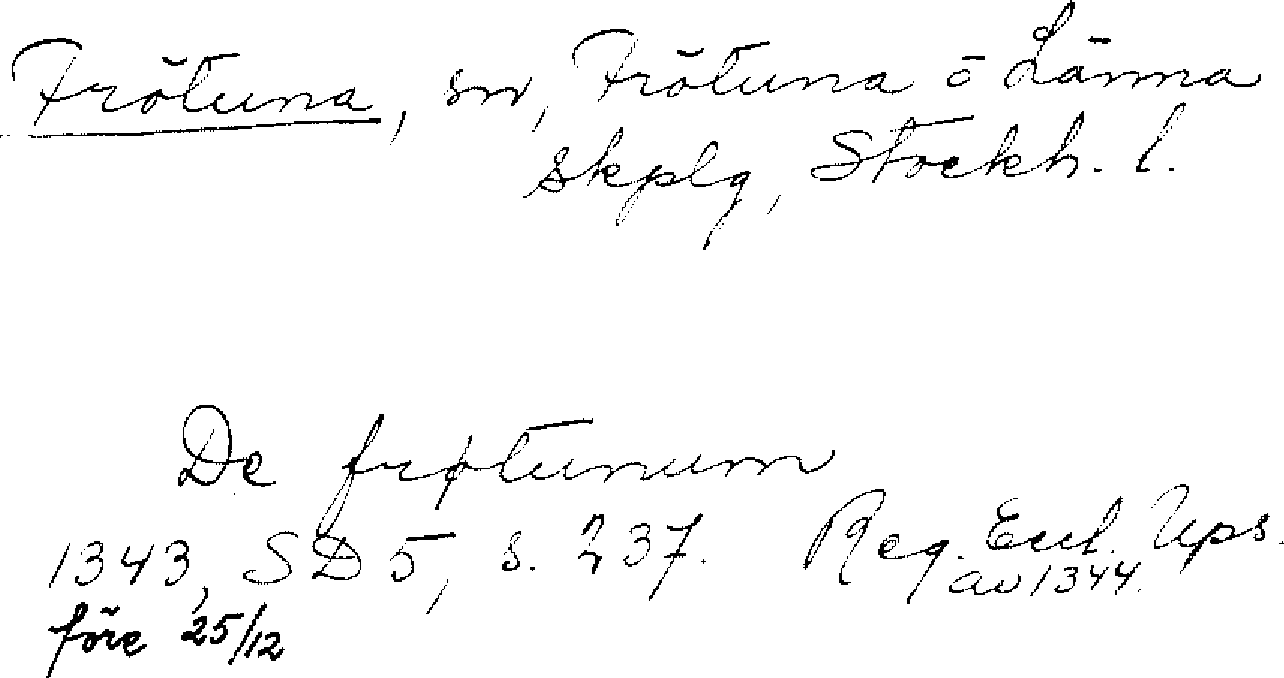 Frötuna, sn, Frötuna o Länna
skplg, Stockh. l.
De frøtunum
1343, SD 5, s. 237. Reg. Eccl. Ups.
före 25/12 av 1344.